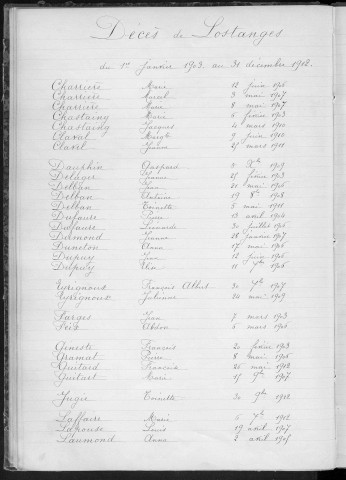 Décès de Lostanges
du 1er Janvier 1903 au 31 décembre 1912.
Charrière Marie 12 juin 1906
Charrière Marcel 3 mai 1907
Charrière Marie 8 mai 1907
Chastainy Marie 6 février 1903
Chastaindy Jacques 4 mars 1910
Claval 9 juin 1910
Claval 25 mars 1911
Dauphin Gaspard 1909
Delager 25 février 1903
Delbau 20 mai 1906
Delbau Antoine 19 8bre 1908
Delbau Toinette 5 mai 1911
Dufaure Pierre 13 avril 1904
Dufaure Léonarde 30 juillet 1905
Dumond 28 janvier 1907
Duneton Anna 17 mai 1906
Dupuy Jean 12 juin 1906
Dupuy 11 1906
Eyrignoux François Albert 30 7bre 1907
Eyrignoux Julienne 24 mai 1909
Farges Jean 7 mars 1903
Feix 6 mars 1906
Geneste François 20 février 1903
Gramat Pierre 8 mai 1906
Guitard François 26 mai 1912
Guitard Marie 15 1907
Jugie Toinette 30 9bre 1912
Laffaire Marie 6 7bre 1902
Lafosse Louis 19 avril 1907
Laumond Anna 2 avril 1905